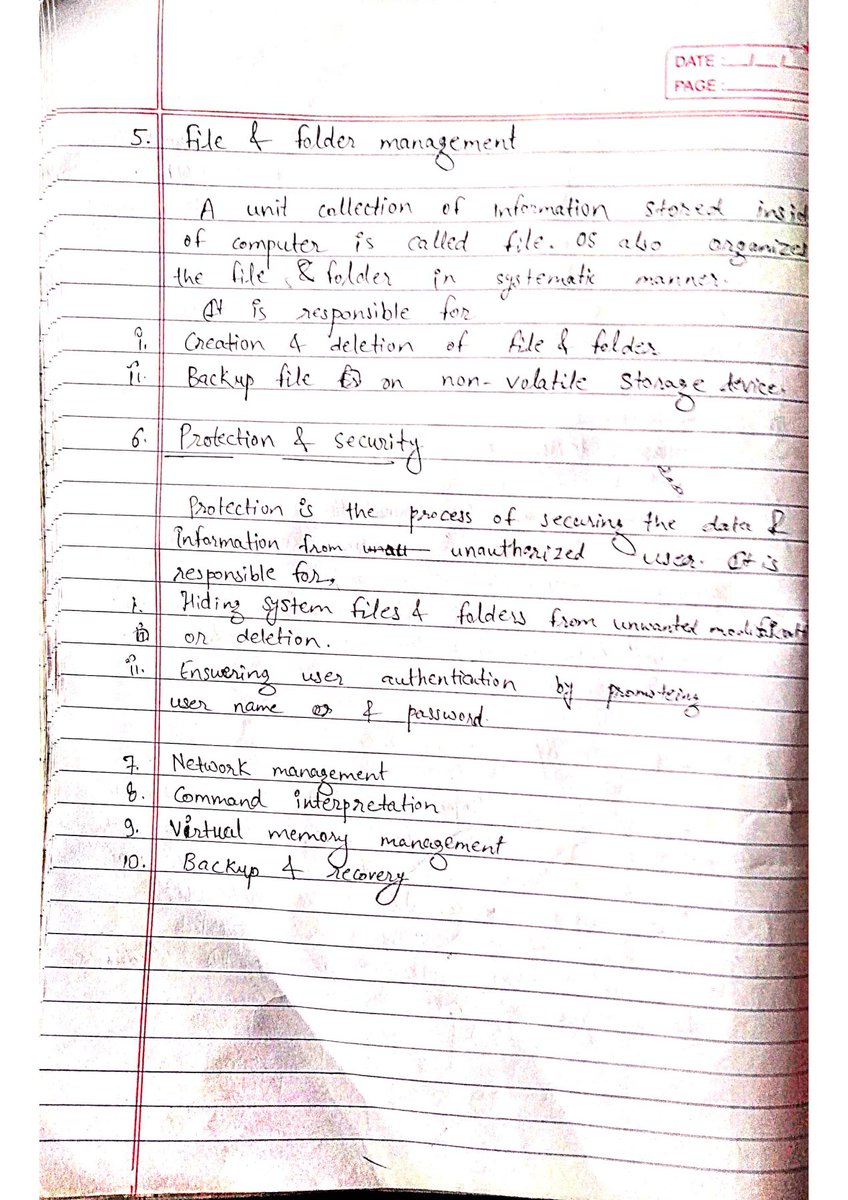 DATE : __/__/
PAGE :
5. File & folder management
A unit collection of information stored insid
of computer is called file. OS also organizes
the file & folder in systematic manner.
It is responsible for
i. Creation & deletion of file & folder
ii. Backup file on non-volatile storage device.
6. Protection & security
Protection is the process of securing the data &
information from unauthorized user. It is
responsible for,
i. Hiding system files & folders from unwanted
or deletion.
ii. Enswering user authentication by
user name & password.
7. Network management
8. Command interpretation
9. Virtual memory management
10. Backup & recovery